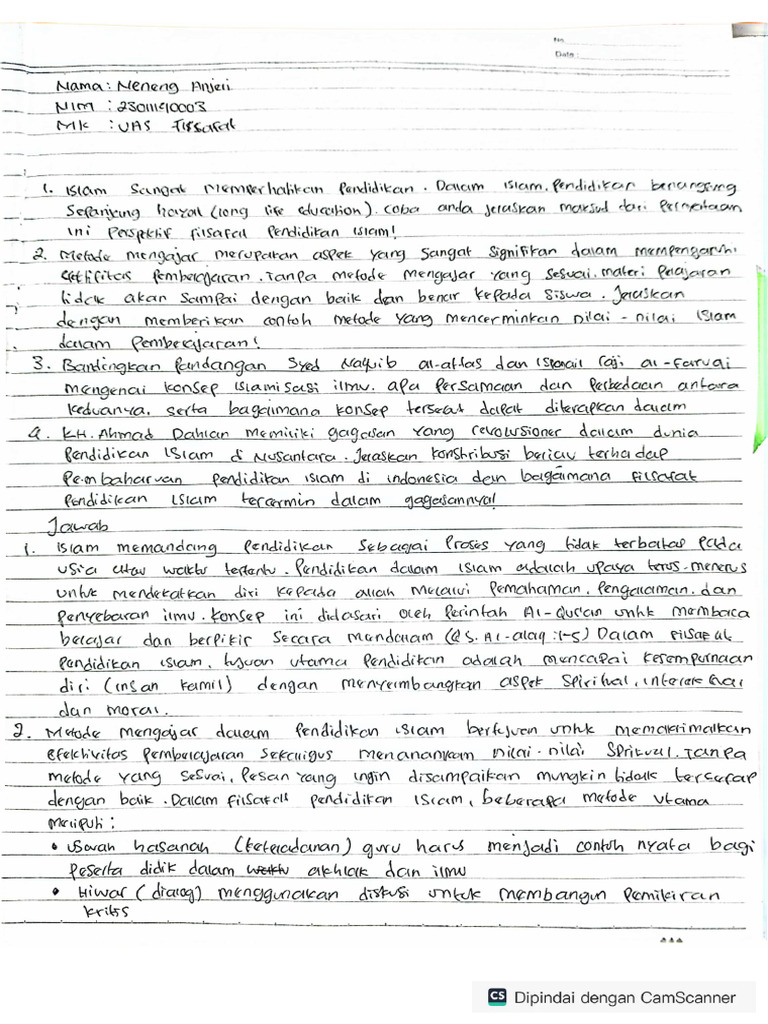 No
Date :
Nama : Neneng Anjeri
NIM : 23011190003
MK : UAS Filsafat
1. Islam Sangat memperhatikan Pendidikan. Dalam islam, Pendidikan berlangsung
Sepanjang hayat (long life education). coba anda jelaskan maksud dari Pernyataan
ini Perspektif filsafat Pendidikan islam!
2. Metode mengajar merupakan aspek yang sangat signifikan dalam mempengaruhi
efektifitas pembelajaran. Tanpa metode mengajar yang sesuai, materi pelajaran
tidak akan sampai dengan baik dan benar kepada siswa. Jelaskan
dengan memberikan contoh metode yang mencerminkan nilai-nilai islam
dalam pembelajaran!
3. Bandingkan Pandangan Syed Naquib al-attas dan Ismail raji al-faruqi
mengenai konsep islamisasi ilmu. apa persamaan dan Perbedaan antara
keduanya. serta bagaimana konsep tersebut dapat diterapkan dalam
4. KH. Ahmad Dahlan memiliki gagasan yang revolusioner dalam dunia
Pendidikan islam di Nusantara. Jelaskan konstribusi beliau terhadap
Pembaharuan pendidikan islam di indonesia dan bagaimana filsafat
Pendidikan islam tercermin dalam gagasannya!
Jawab
1. islam memandang pendidikan Sebagai Proses yang tidak terbatas pada
usia atau waktu tertentu. Pendidikan dalam islam adalah upaya terus-menerus
untuk mendekatkan diri kepada allah melalui pemahaman, Pengalaman, dan
penyebaran ilmu. konsep ini didasari oleh perintah Al-Qur'an untuk membaca
belajar dan berpikir secara mendalam (QS. Al-alaq :1-5) Dalam filsafat
pendidikan islam, tujuan utama pendidikan adalah mencapai kesempurnaan
diri (insan kamil) dengan menyeimbangkan aspek spiritual, intelektual
dan moral.
2. Metode mengajar dalam Pendidikan islam bertujuan untuk memaksimalkan
efektivitas pembelajaran sekaligus menanamkan nilai-nilai Spritual. Tanpa
metode yang sesuai, pesan yang ingin disampaikan mungkin tidak terserap
dengan baik. Dalam filsafat pendidikan islam, beberapa metode utama
meliputi :
• uswah hasanah (keteladanan) guru harus menjadi contoh nyata bagi
peserta didik dalam akhlak dan ilmu
• Hiwar (dialog) menggunakan diskusi untuk membangun pemikiran
kritis
CS Dipindai dengan CamScanner